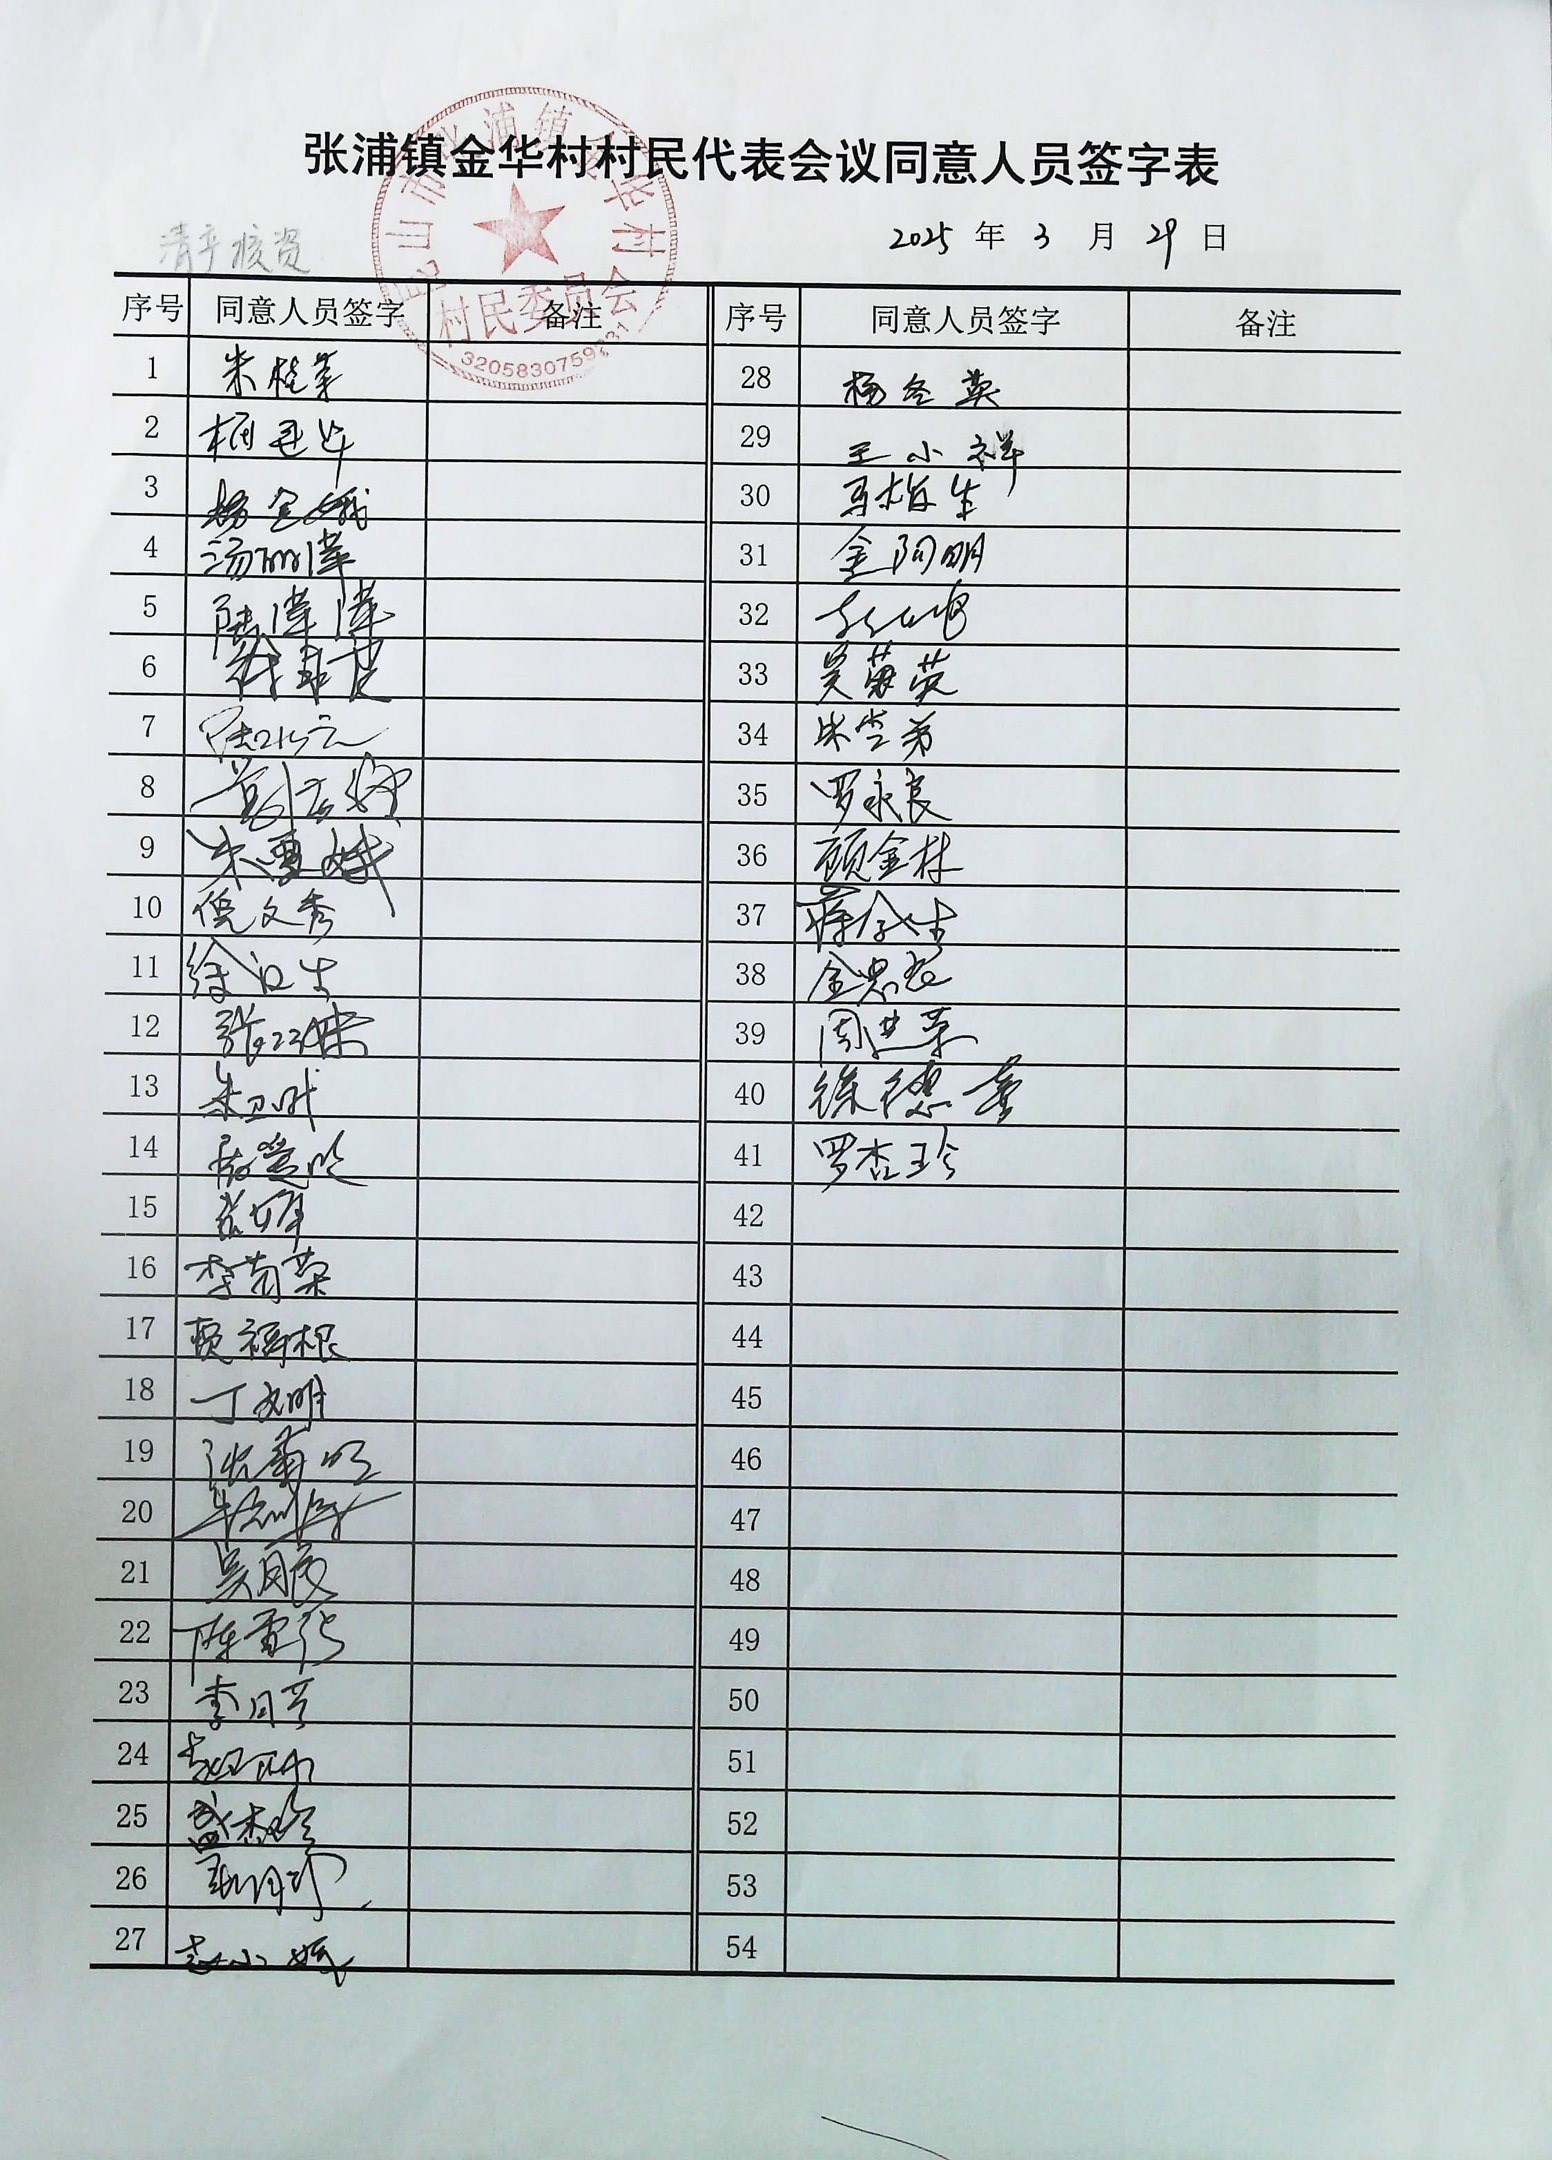 张浦镇金华村村民代表会议同意人员签字表
昆山市张浦镇金华村
村民委员会
清产核资
2025 年 3 月 29 日
序号 同意人员签字 备注 序号 同意人员签字 备注
1 朱桂英 28 杨冬英
2 29 王小祥
3 杨金娥 30 马梅生
4 汤丽萍 31 金阿明
5 陆萍萍 32
6 33 吴菊英
7 陆小云 34 朱雪弟
8 35 罗永良
9 朱雪娥 36 顾金林
10 倪文秀 37 蒋金生
11 徐汉生 38 金忠元
12 39 周进荣
13 40 徐德荣
14 41 罗杏珍
15 42
16 李菊荣 43
17 顾福根 44
18 丁文明 45
19 沈菊明 46
20 47
21 吴月良 48
22 陈雪红 49
23 李月芳 50
24 51
25 盛杏珍 52
26 53
27 54